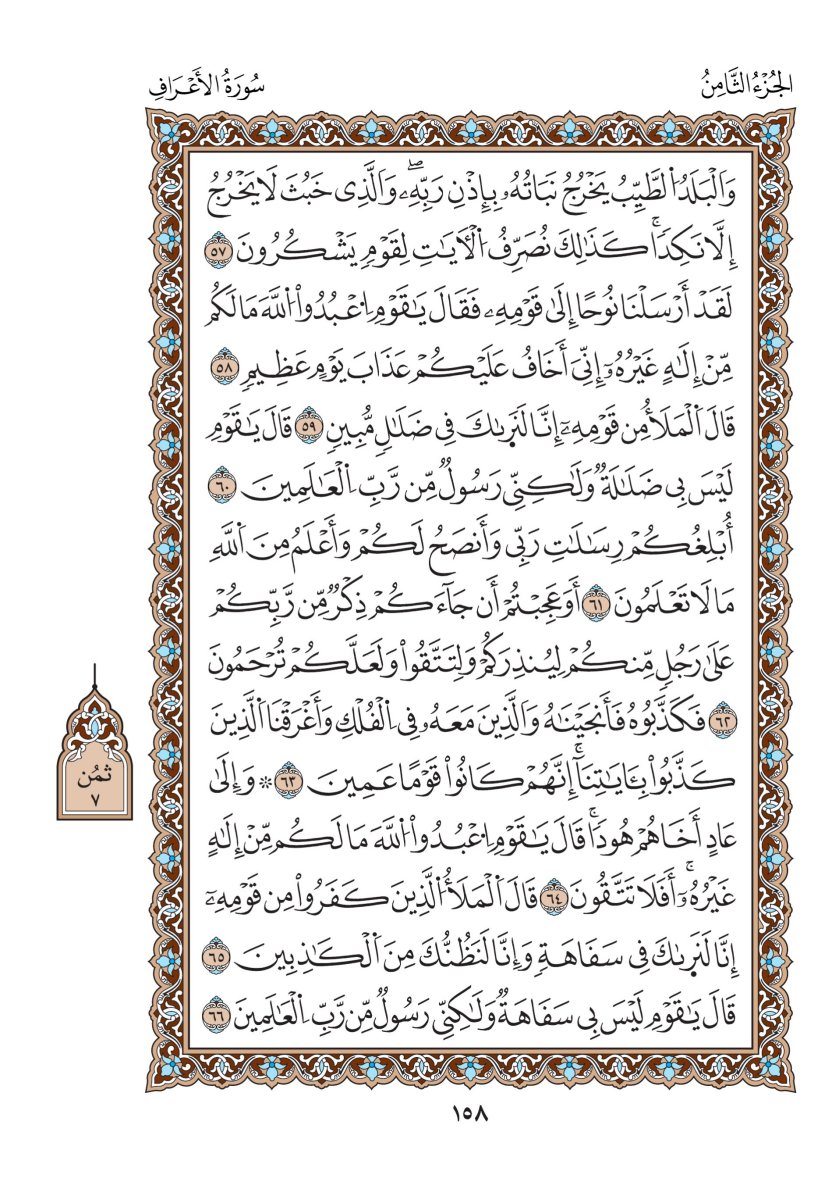 الجُزْءُ الثَّامِنُ
سُورَةُ الأَعْرَافِ
وَالْبَلَدُ اُلطَّيِّبُ يَخْرُجُ نَبَاتُهُۥ بِإِذْنِ رَبِّهِۦۖ وَالَّذِى خَبُثَ لَا يَخْرُجُ
إِلَّا نَكِدٗاۚ كَذَٰلِكَ نُصَرِّفُ اُلْأٓيَٰتِ لِقَوْمٖ يَشْكُرُونَ ٥٧
لَقَدْ أَرْسَلْنَا نُوحًا إِلَىٰ قَوْمِهِۦ فَقَالَ يَٰقَوْمِ اِعْبُدُواْ اُللَّهَ مَا لَكُم
مِّنْ إِلَٰهٍ غَيْرُهُۥٓ إِنِّىٓ أَخَافُ عَلَيْكُمْ عَذَابَ يَوْمٍ عَظِيمٖ ٥٨
قَالَ اَلْمَلَأُ مِن قَوْمِهِۦٓ إِنَّا لَنَرَىٰكَ فِى ضَلَٰلٖ مُّبِينٖ ٥٩ قَالَ يَٰقَوْمِ
لَيْسَ بِى ضَلَٰلَةٞ وَلَٰكِنِّى رَسُولٞ مِّن رَّبِّ اِلْعَٰلَمِينَ ٦٠
أُبْلِغُكُمْ رِسَٰلَٰتِ رَبِّى وَأَنصَحُ لَكُمْ وَأَعْلَمُ مِنَ اَللَّهِ
مَا لَا تَعْلَمُونَ ٦١ أَوَعَجِبْتُمْ أَن جَآءَكُمْ ذِكْرٞ مِّن رَّبِّكُمْ
عَلَىٰ رَجُلٖ مِّنكُمْ لِيُنذِرَكُمْ وَلِتَتَّقُواْ وَلَعَلَّكُمْ تُرْحَمُونَ
٦٢ فَكَذَّبُوهُ فَأَنجَيْنَٰهُ وَالَّذِينَ مَعَهُۥ فِى اِلْفُلْكِ وَأَغْرَقْنَا اَلَّذِينَ
كَذَّبُواْ بِـَٔايَٰتِنَآۚ إِنَّهُمْ كَانُواْ قَوْمًا عَمِينَ ٦٣ ۞ وَإِلَىٰ
عَادٍ أَخَاهُمْ هُودٗاۚ قَالَ يَٰقَوْمِ اِعْبُدُواْ اُللَّهَ مَا لَكُم مِّنْ إِلَٰهٍ
غَيْرُهُۥٓۚ أَفَلَا تَتَّقُونَ ٦٤ قَالَ اَلْمَلَأُ اُلَّذِينَ كَفَرُواْ مِن قَوْمِهِۦٓ
إِنَّا لَنَرَىٰكَ فِى سَفَاهَةٖ وَإِنَّا لَنَظُنُّكَ مِنَ اَلْكَٰذِبِينَ ٦٥
قَالَ يَٰقَوْمِ لَيْسَ بِى سَفَاهَةٞ وَلَٰكِنِّى رَسُولٞ مِّن رَّبِّ اِلْعَٰلَمِينَ ٦٦
ثمُن
٧
١٥٨